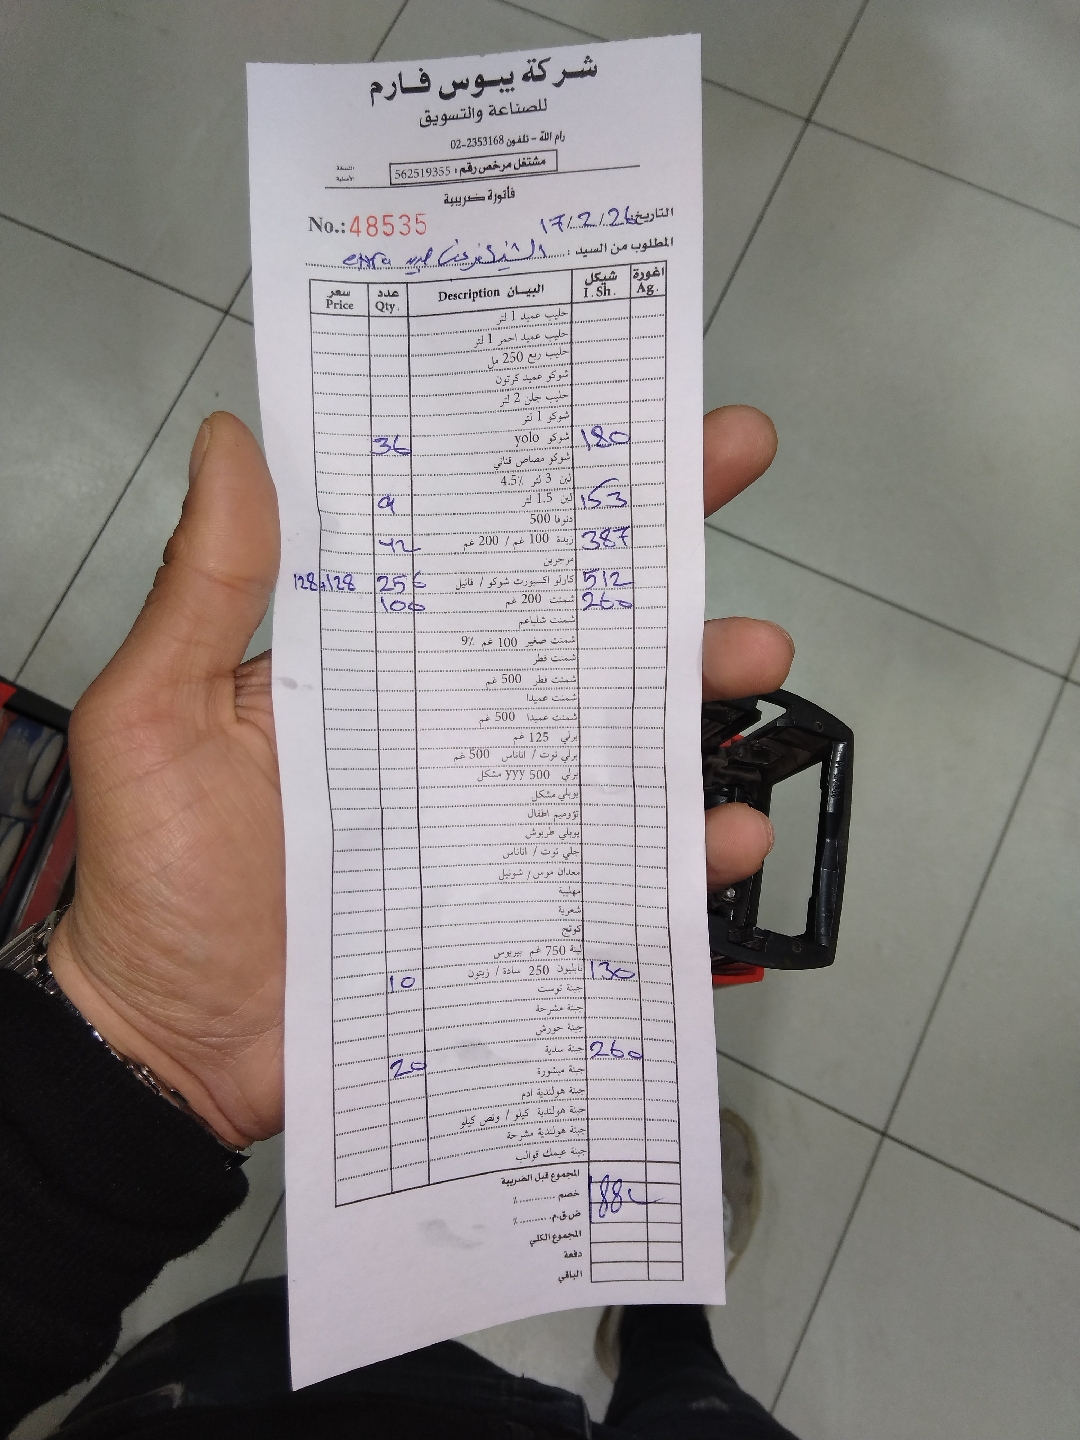 شركة يبوس فارم
للصناعة والتسويق
رام الله - تلفون 2353168-02
مشتغل مرخص رقم: 562519355
النسخة الأصلية
فاتورة ضريبية
No.: 48535
التاريخ: 17/2/26
المطلوب من السيد: extra
سعر Price عدد Qty. البيـــان Description شيكل I.Sh. اغورة Ag.
حليب عميد 1 لتر
حليب عميد احمر 1 لتر
حليب ربع 250 مل
شوكو عميد كرتون
حليب جلن 2 لتر
شوكو 1 لتر
36 شوكو yolo 180
شوكو مصاص قناني
لبن 3 لتر 4.5%
9 لبن 1.5 لتر 153
دنوفا 500
42 زبدة 100 غم / 200 غم 387
مرجرين
128+128 256 كارلو اكسبورت شوكو / فانيل 512
100 شمنت 200 غم 260
شمنت شلباعم
شمنت صغير 100 غم 9%
شمنت فطر
شمنت فطر 500 غم
شمنت عميدا
شمنت عميدا 500 غم
برلي 125 غم
برلي توت / اناناس 500 غم
برلي yyy 500 مشكل
يوبلي مشكل
تؤوميم اطفال
يوبلي طربوش
جلي توت / اناناس
معدان موس / شونيل
مهلبية
شعرية
كوتج
لبنة 750 غم بيريوس
10 نابليون 250 سادة / زيتون 130
جبنة توست
جبنة مشرحة
جبنة حورش
20 جبنة سدية 260
جبنة مبشورة
جبنة هولندية ادم
جبنة هولندية كيلو / ونص كيلو
جبنة هولندية مشرحة
جبنة عيمك قوالب
المجموع قبل الضريبة
خصم ............٪
ض.ق.م............٪
المجموع الكلي
دفعة
الباقي